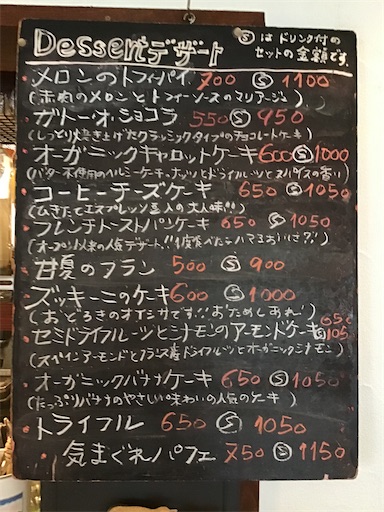 Dessert デザート
Ⓢはドリンク付の
セットの金額です。
メロンのトフィーパイ 700 Ⓢ 1100
(赤肉のメロンとトフィーソースのマリアージュ)
ガトーオ・ショコラ 550 Ⓢ 950
(しっとり焼き上げたクラッシックタイプのチョコレートケーキ)
オーガニックキャロットケーキ 600 Ⓢ 1000
(バター不使用のヘルシーケーキナッツとドライフルーツとスパイスの香い)
コーヒーチーズケーキ 650 Ⓢ 1050
(ひきたてエスプレッソ豆入の大人味!!)
フレンチトーストパンケーキ 650 Ⓢ 1050
(オープン以来の人気デザート!!1度食べたらハマるおいしさ?!)
甘夏のフラン 500 Ⓢ 900
ズッキーニのケーキ 600 Ⓢ 1000
(おどろきのオイシサです!!おためしあれ!)
セミドライフルーツとシナモンのアーモンドケーキ 650 Ⓢ 105
(スペインアーモンドとフランス産ドライフルーツとオーガニックシナモン)
オーガニックバナナケーキ 650 Ⓢ 1050
(たっぷりバナナのやさしい味わいの人気のケーキ)
トライフル 650 Ⓢ 1050
気まぐれパフェ 750 Ⓢ 1150